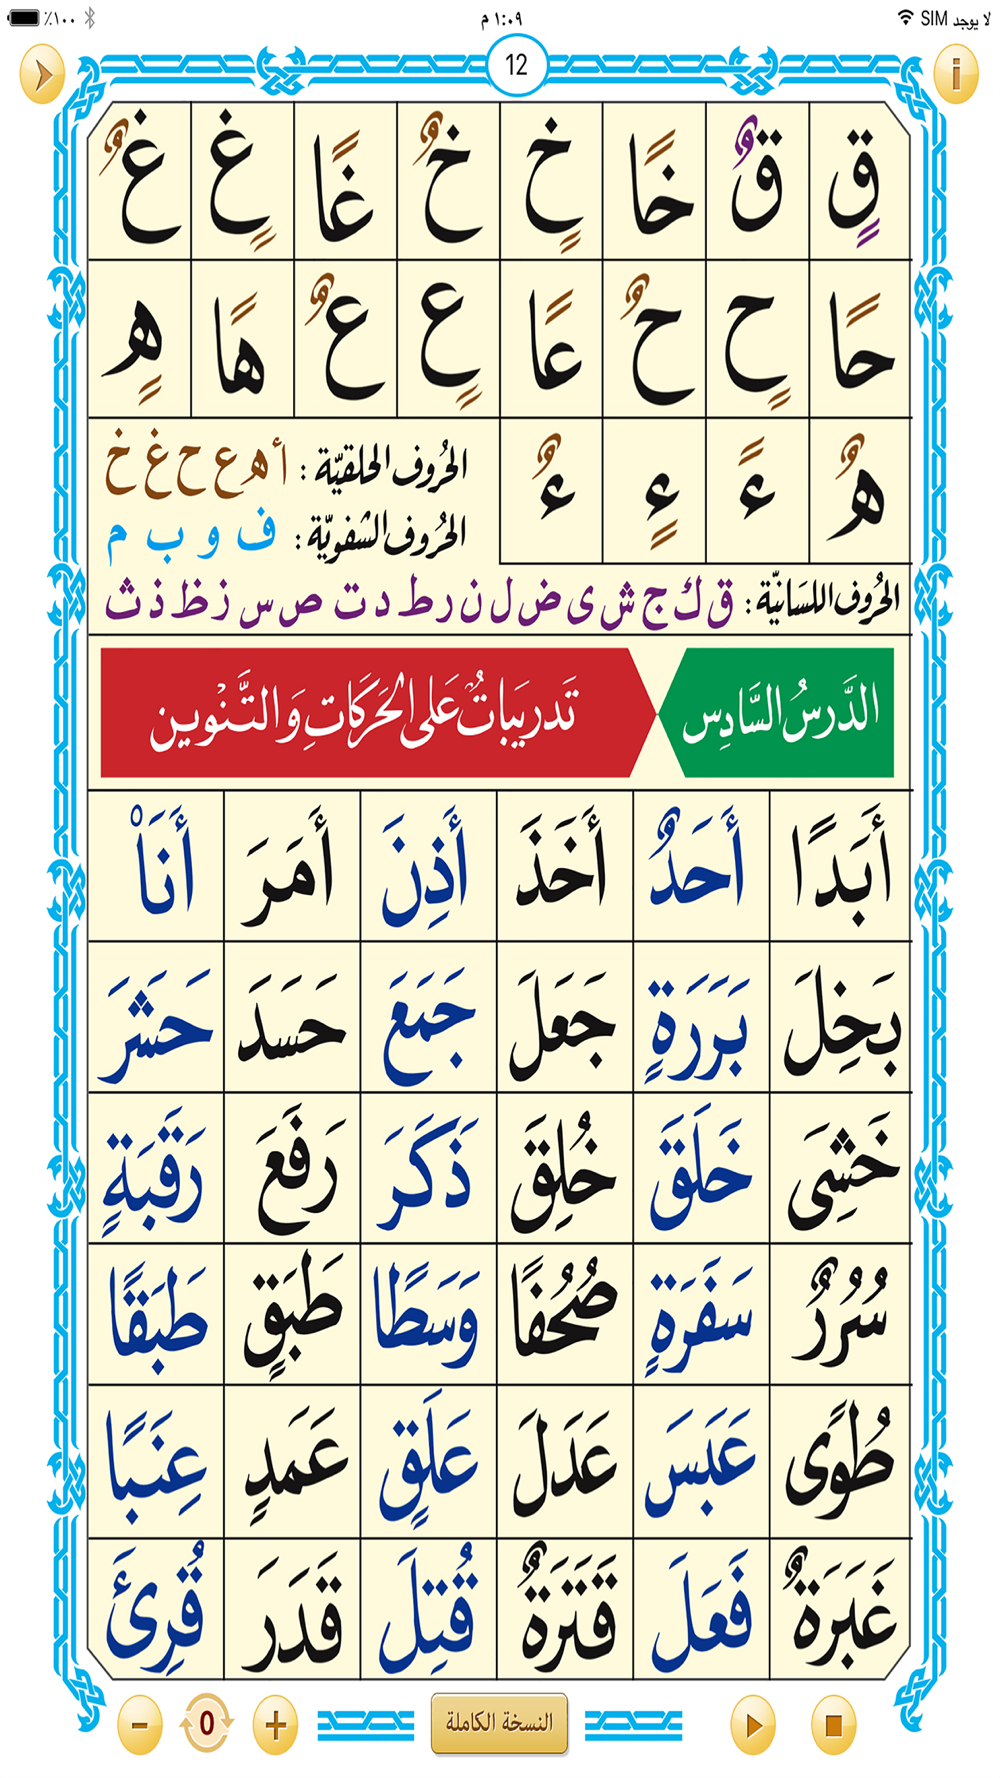 لا يوجد SIM ١:٠٩ م ٪١٠٠
12
قٍ قٌ خًا خٍ خٌ غًا غٍ غٌ
حًا حٍ حٌ عًا عٍ عٌ هًا هٍ
هٌ ءً ءٍ ءٌ
الحُروف الحلقيّة : أ ه ع ح غ خ
الحُروف الشفويّة : ف و ب م
الحُروف اللسَانيّة : ق ك ج ش ى ض ل ن ر ط د ت ص س ز ظ ذ ث
الدَّرسُ السَّادِس تَدرِيبَاتٌ عَلى الحَرَكَاتِ وَالتَّنْوين
أَبَدًا أَحَدٌ أَخَذَ أَذِنَ أَمَرَ أَنَا۠
بَخِلَ بَرَرَةٍ جَعَلَ جَمَعَ حَسَدَ حَشَرَ
خَشِىَ خَلَقَ خُلِقَ ذَكَرَ رَفَعَ رَقَبَةٍ
سُرُرٌ سَفَرَةٍ صُحُفًا وَسَطًا طَبَقٍ طَبَقًا
طُوًى عَبَسَ عَدَلَ عَلَقٍ عَمَدٍ عِنَبًا
غَبَرَةٌ فَعَلَ قَتَرَةٌ قُتِلَ قَدَرَ قُرِئَ
النسخة الكاملة 0